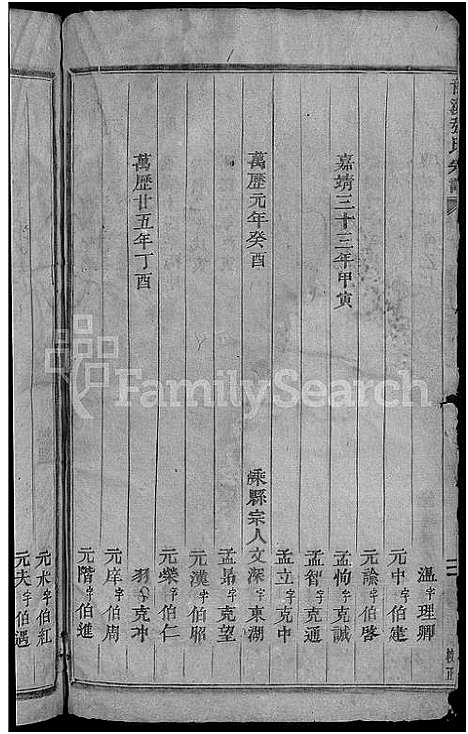 溫字理卿
元中字伯建
元諭字伯啓
嘉靖三十三年甲寅
孟恂字克誠
孟智字克通
孟立字克中
萬歷元年癸酉
嵊縣宗人文深字東湖
孟昂字克望
元漢字伯昭
元榮字伯仁
萬歷廿五年丁酉
字克冲
元庠字伯周
元階字伯進
元水字伯紅
元夫字伯遇
校正
FamilySearch